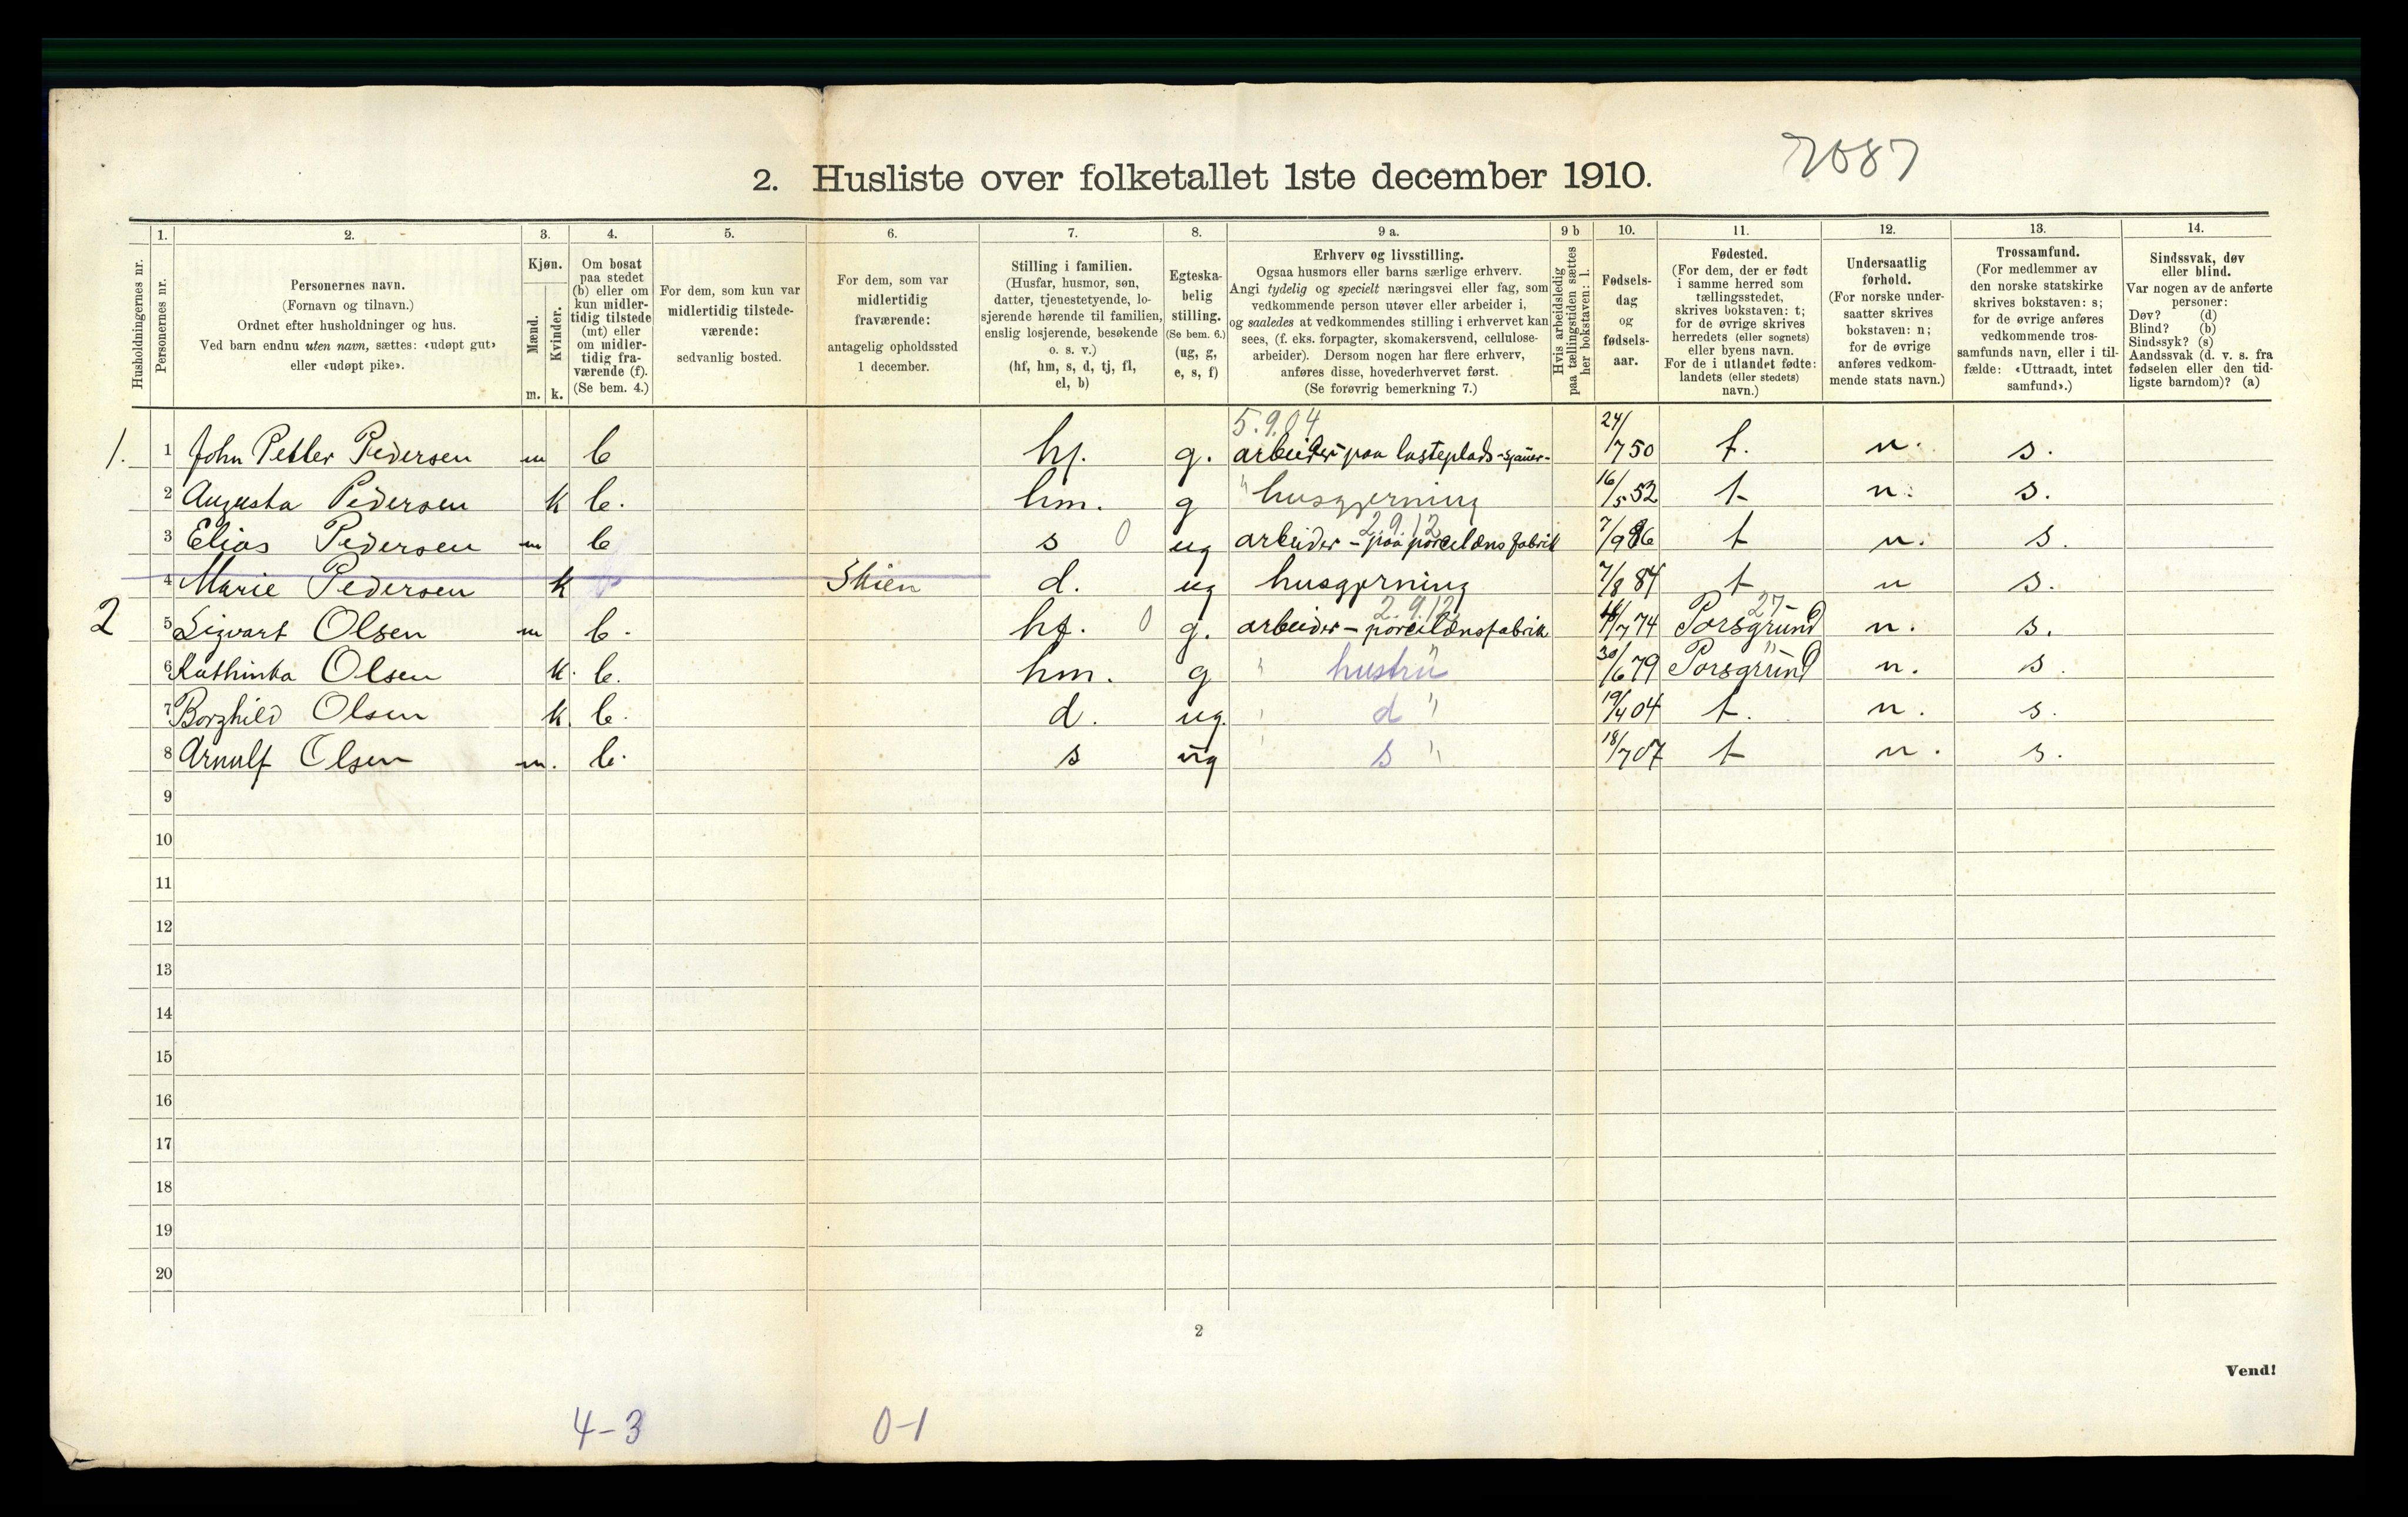 7087
2. Husliste over folketallet 1ste december 1910.
1. 2. 3. 4. 5. 6. 7. 8. 9 a. 9 b 10. 11. 12. 13. 14.
Husholdningernes nr.
Personernes nr.
Personernes navn.
(Fornavn og tilnavn.)
Ordnet efter husholdninger og hus.
Ved barn endnu uten navn, sættes: «udøpt gut»
eller «udøpt pike».
Kjøn.
Mænd.
Kvinder.
m. k.
Om bosat
paa stedet
(b) eller om
kun midler-
tidig tilstede
(mt) eller
om midler-
tidig fra-
værende (f).
(Se bem. 4.)
For dem, som kun var
midlertidig tilstede-
værende:
sedvanlig bosted.
For dem, som var
midlertidig
fraværende:
antagelig opholdssted
1 december.
Stilling i familien.
(Husfar, husmor, søn,
datter, tjenestetyende, lo-
sjerende hørende til familien,
enslig losjerende, besøkende
o. s. v.)
(hf, hm, s, d, tj, fl,
el, b)
Egteska-
belig
stilling.
(Se bem. 6.)
(ug, g,
e, s, f)
Erhverv og livsstilling.
Ogsaa husmors eller barns særlige erhverv.
Angi tydelig og specielt næringsvei eller fag, som
vedkommende person utøver eller arbeider i,
og saaledes at vedkommendes stilling i erhvervet kan
sees, (f. eks. forpagter, skomakersvend, cellulose-
arbeider). Dersom nogen har flere erhverv,
anføres disse, hovederhvervet først.
(Se forøvrig bemerkning 7.)
Hvis arbeidsledig
paa tællingstiden sættes
her bokstaven: l.
Fødsels-
dag
og
fødsels-
aar.
Fødested.
(For dem, der er født
i samme herred som
tællingsstedet,
skrives bokstaven: t;
for de øvrige skrives
herredets (eller sognets)
eller byens navn.
For de i utlandet fødte:
landets (eller stedets)
navn.)
Undersaatlig
forhold.
(For norske under-
saatter skrives
bokstaven: n;
for de øvrige
anføres vedkom-
mende stats navn.)
Trossamfund.
(For medlemmer av
den norske statskirke
skrives bokstaven: s;
for de øvrige anføres
vedkommende tros-
samfunds navn, eller i til-
fælde: «Uttraadt, intet
samfund».)
Sindssvak, døv
eller blind.
Var nogen av de anførte
personer:
Døv? (d)
Blind? (b)
Sindssyk? (s)
Aandssvak (d. v. s. fra
fødselen eller den tid-
ligste barndom)? (a)
5.9.04
1. 1 John Petter Pedersen m b hf. g. arbeider paa lasteplads - sjauer - 24/7 50 t. n. s.
2 Augusta Pedersen k b. hm. g " husgjerning 16/5 52 t n. s.
2.9.12
3 Elias Pedersen m b s 0 ug arbeider - paa porcelænsfabrik 7/9 86 t n. s.
4 Marie Pedersen k Skien d. ug husgjerning 7/8 84 t n s.
2.9.12 27-
2 5 Sigvart Olsen m b. hf. 0 g. arbeider - porcelænsfabrik /7 74 Porsgrund n. s.
6 Kathinka Olsen k. b. hm. g " hustru " 30/6 79 Porsgrund " n. s.
7 Borghild Olsen k. b. d. ug. " d " 19/4 04 t. n. s.
8 Arnulf Olsen m. b. s ug " s " 18/7 07 t n. s.
9
10
11
12
13
14
15
16
17
18
19
20
2
Vend!
4-3 0-1